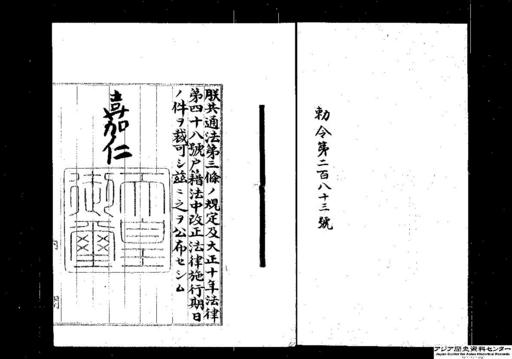 勅令第二百八十三號
朕共通法第三條ノ規定及大正十年法律
第四十八號戸籍法中改正法律施行期日
ノ件ヲ裁可シ茲ニ之ヲ公布セシム
嘉仁
天皇御璽
内
閣
アジア歴史資料センター
Japan Center for Asian Historical Records